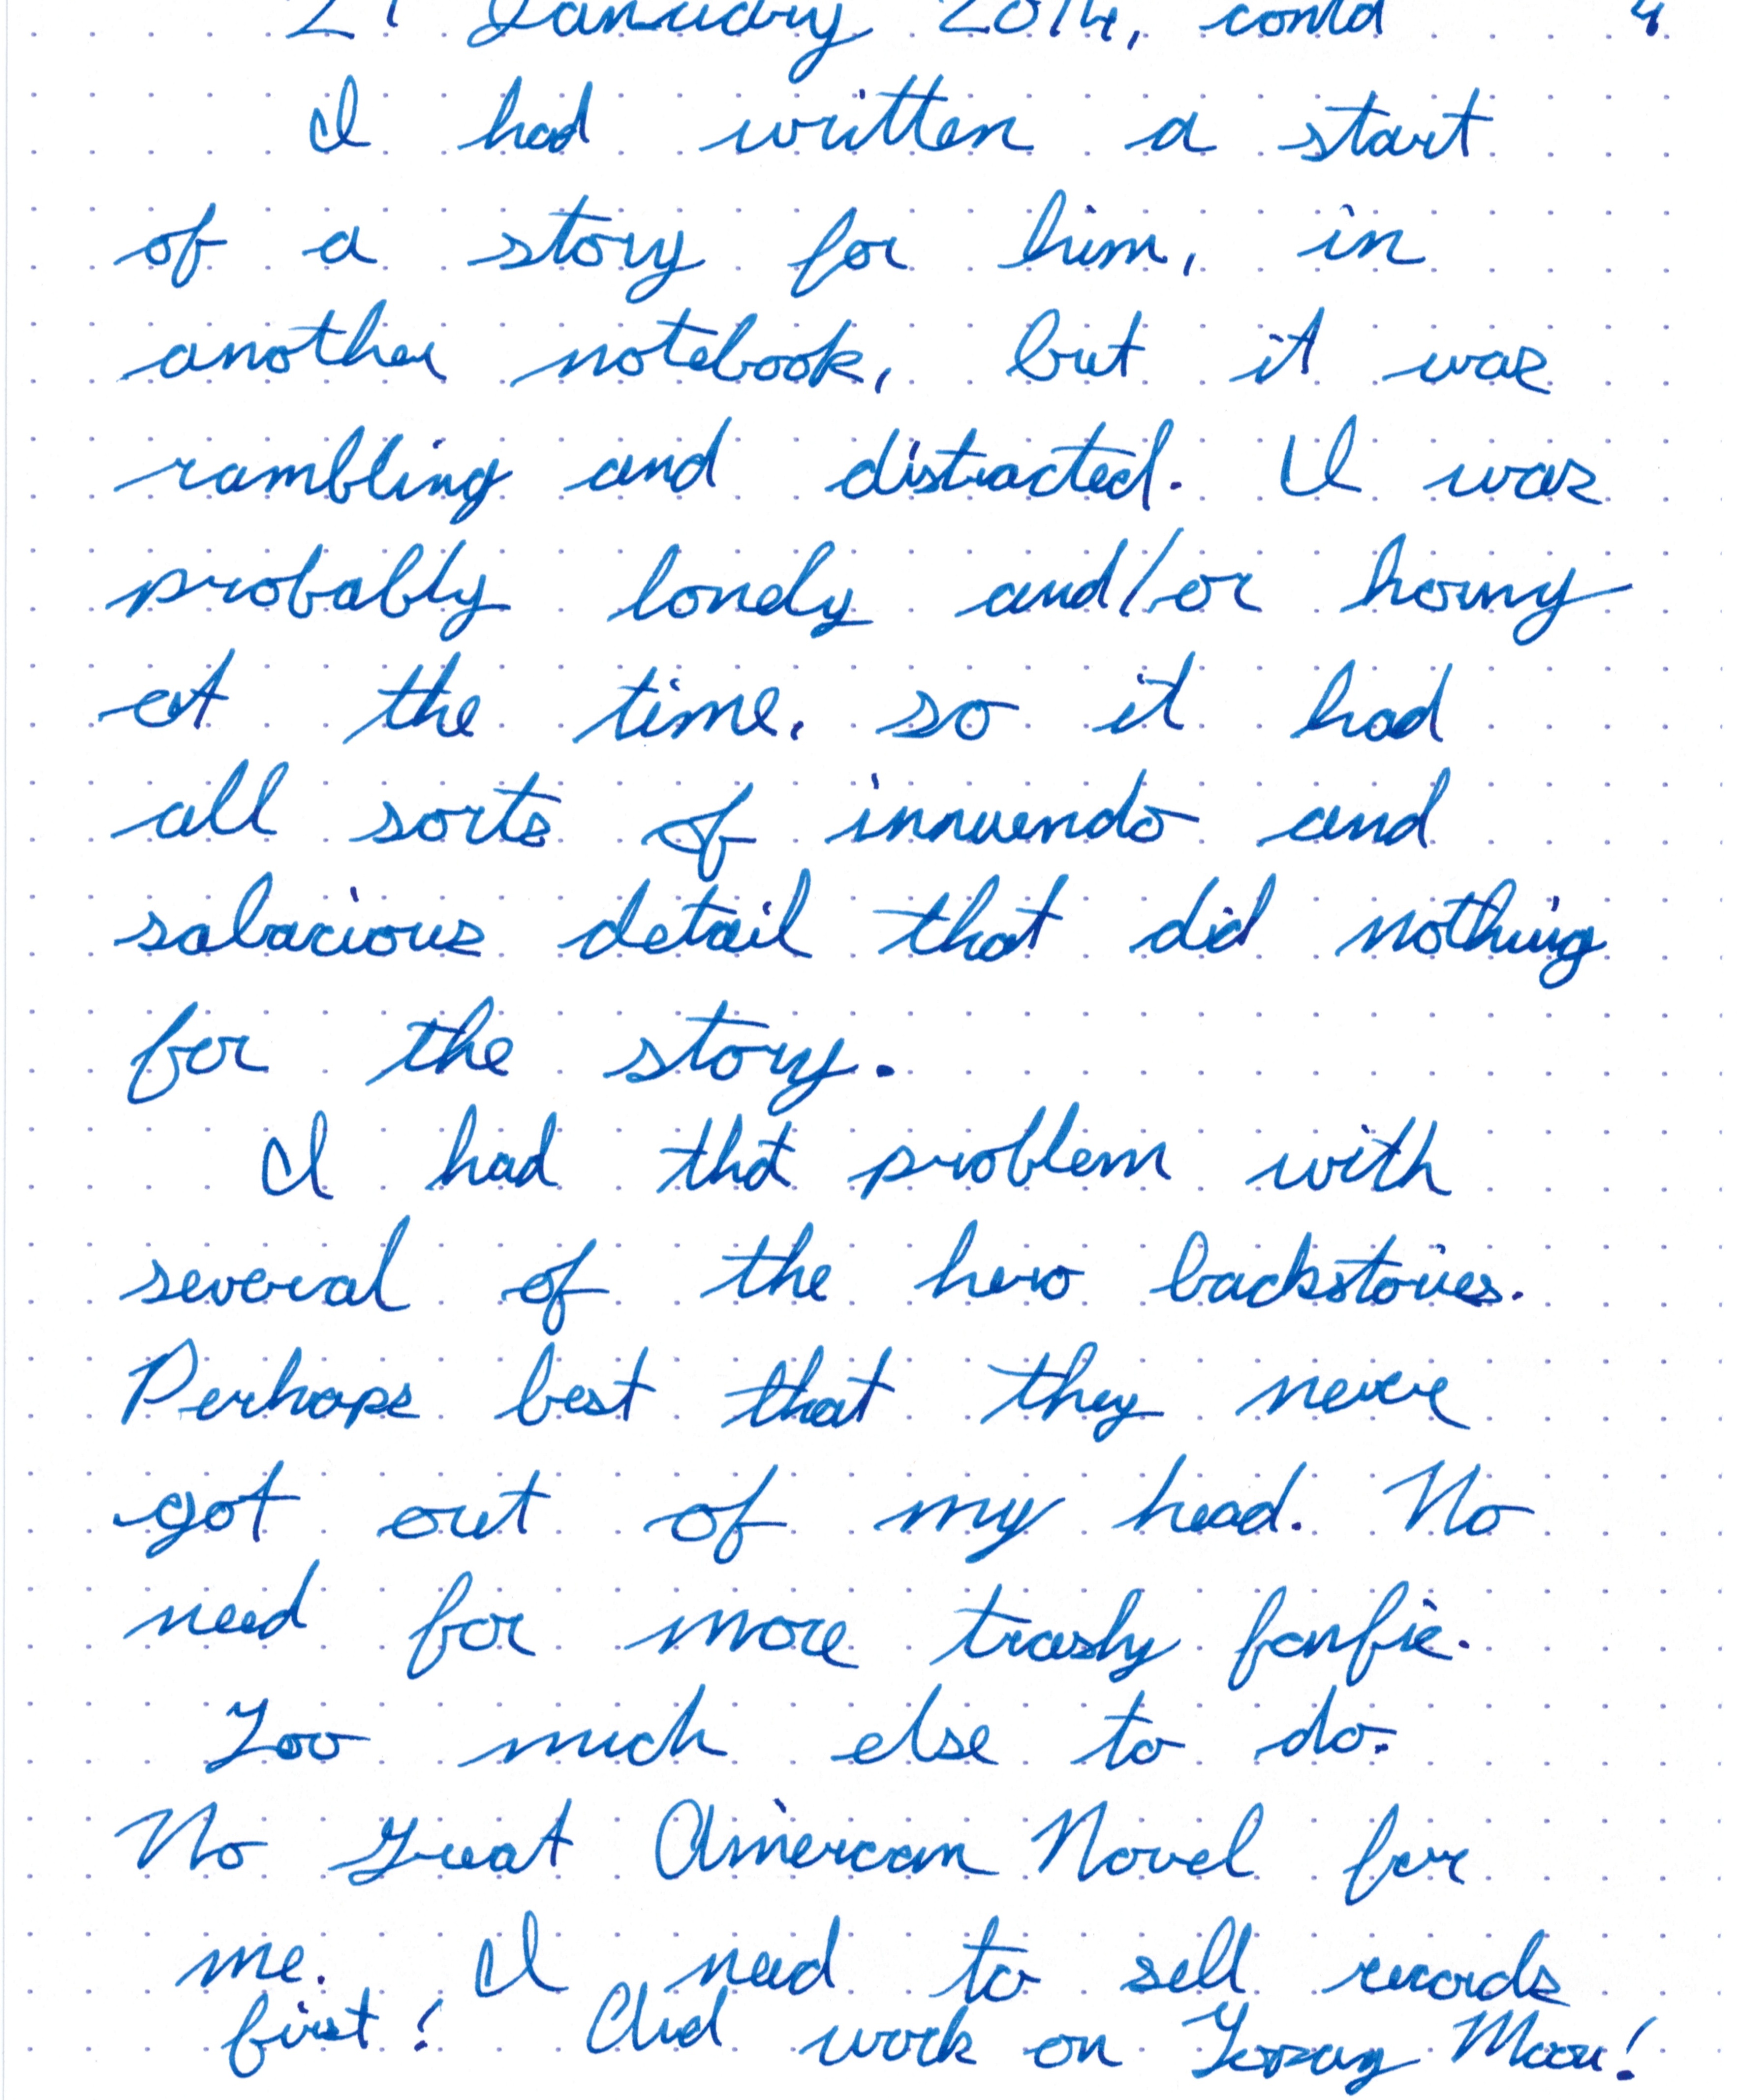 21 January 2014, contd 4
I had written a start
of a story for him, in
another notebook, but it was
rambling and distracted. I was
probably lonely and/or horny
at the time, so it had
all sorts of innuendo and
salacious detail that did nothing
for the story.
I had that problem with
several of the hero backstories.
Perhaps best that they never
got out of my head. No
need for more trashy fanfic.
Too much else to do.
No Great American Novel for
me. I need to sell records
first! And work on